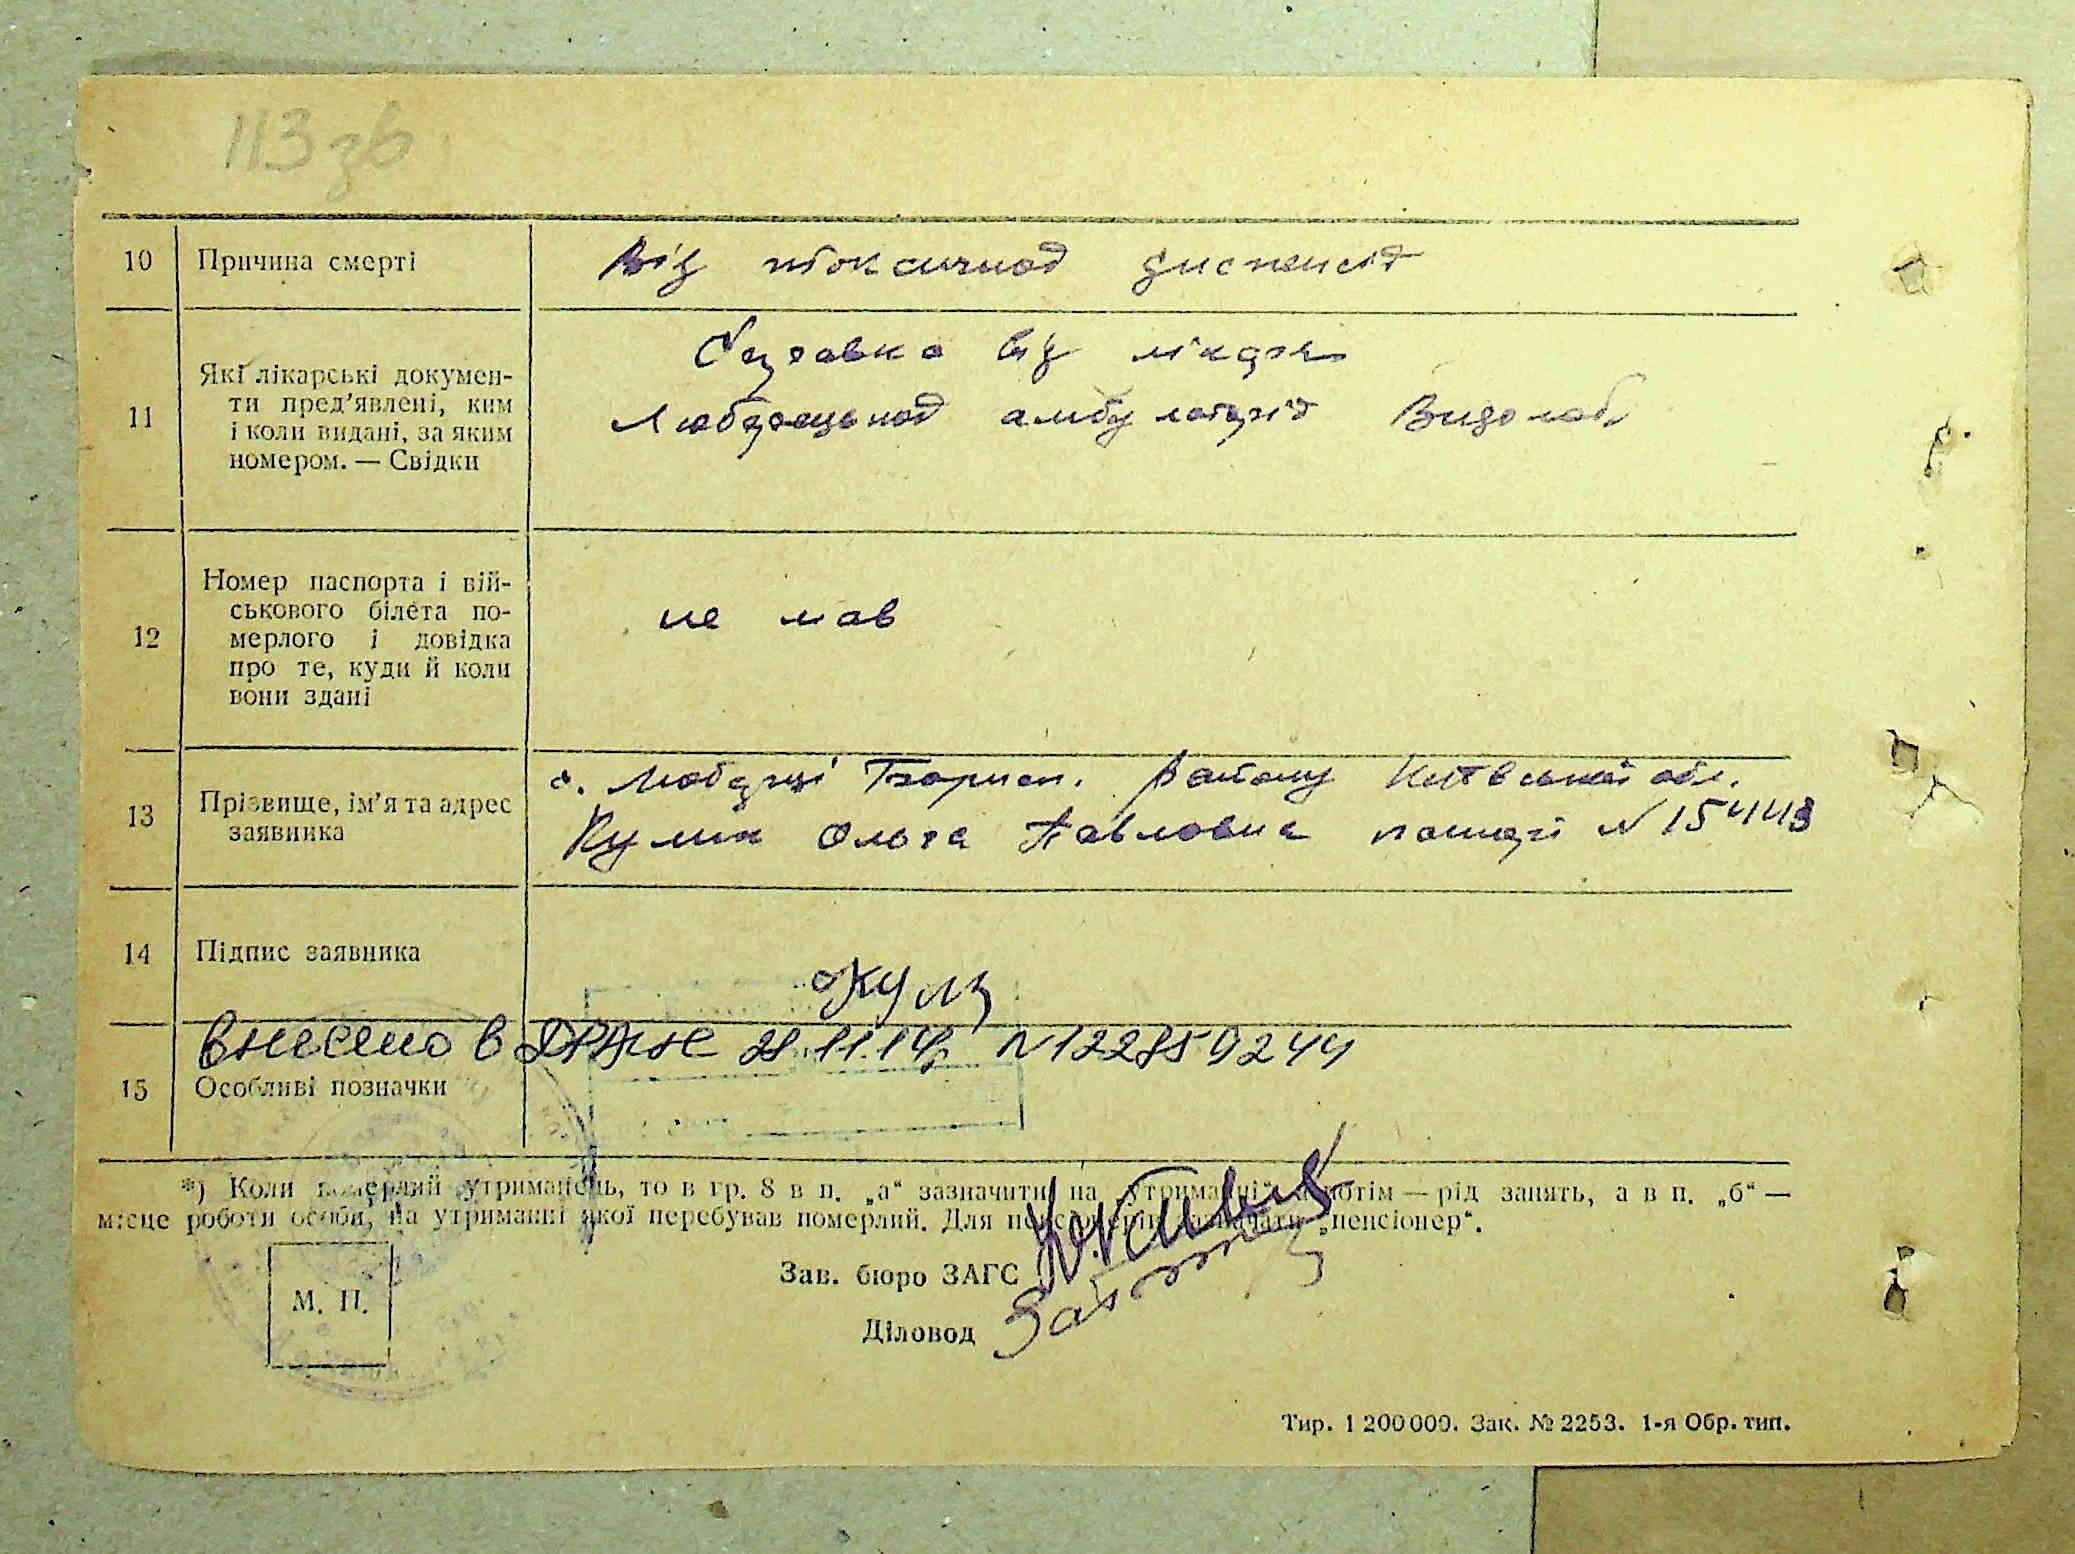 113 зв
10 Причина смерті Від токсичної диспепсії
11 Які лікарські докумен-
ти пред'явлені, ким
і коли видані, за яким
номером. — Свідки
Справка від лікаря
Любарецької амбулаторії
12 Номер паспорта і вій-
ськового білета по-
мерлого і довідка
про те, куди й коли
вони здані
не мав
13 Прізвище, ім'я та адрес
заявника
с. Любарці Борисп. району Київської обл.
Кулик Ольга Павловна N 154443
14 Підпис заявника
внесено в 28.11.14р. N 122859244
15 Особливі позначки
*) Коли померлий утриманець, то в гр. 8 в п. „а“ зазначити „на утриманні“ а потім — рід занять, а в п. „б“ —
місце роботи особи, на утриманні якої перебував померлий. Для пенсіонерів зазначати „пенсіонер“.
Зав. бюро ЗАГС
М. П.
Діловод
Тир. 1 200 000. Зак. № 2253. 1-я Обр. тип.